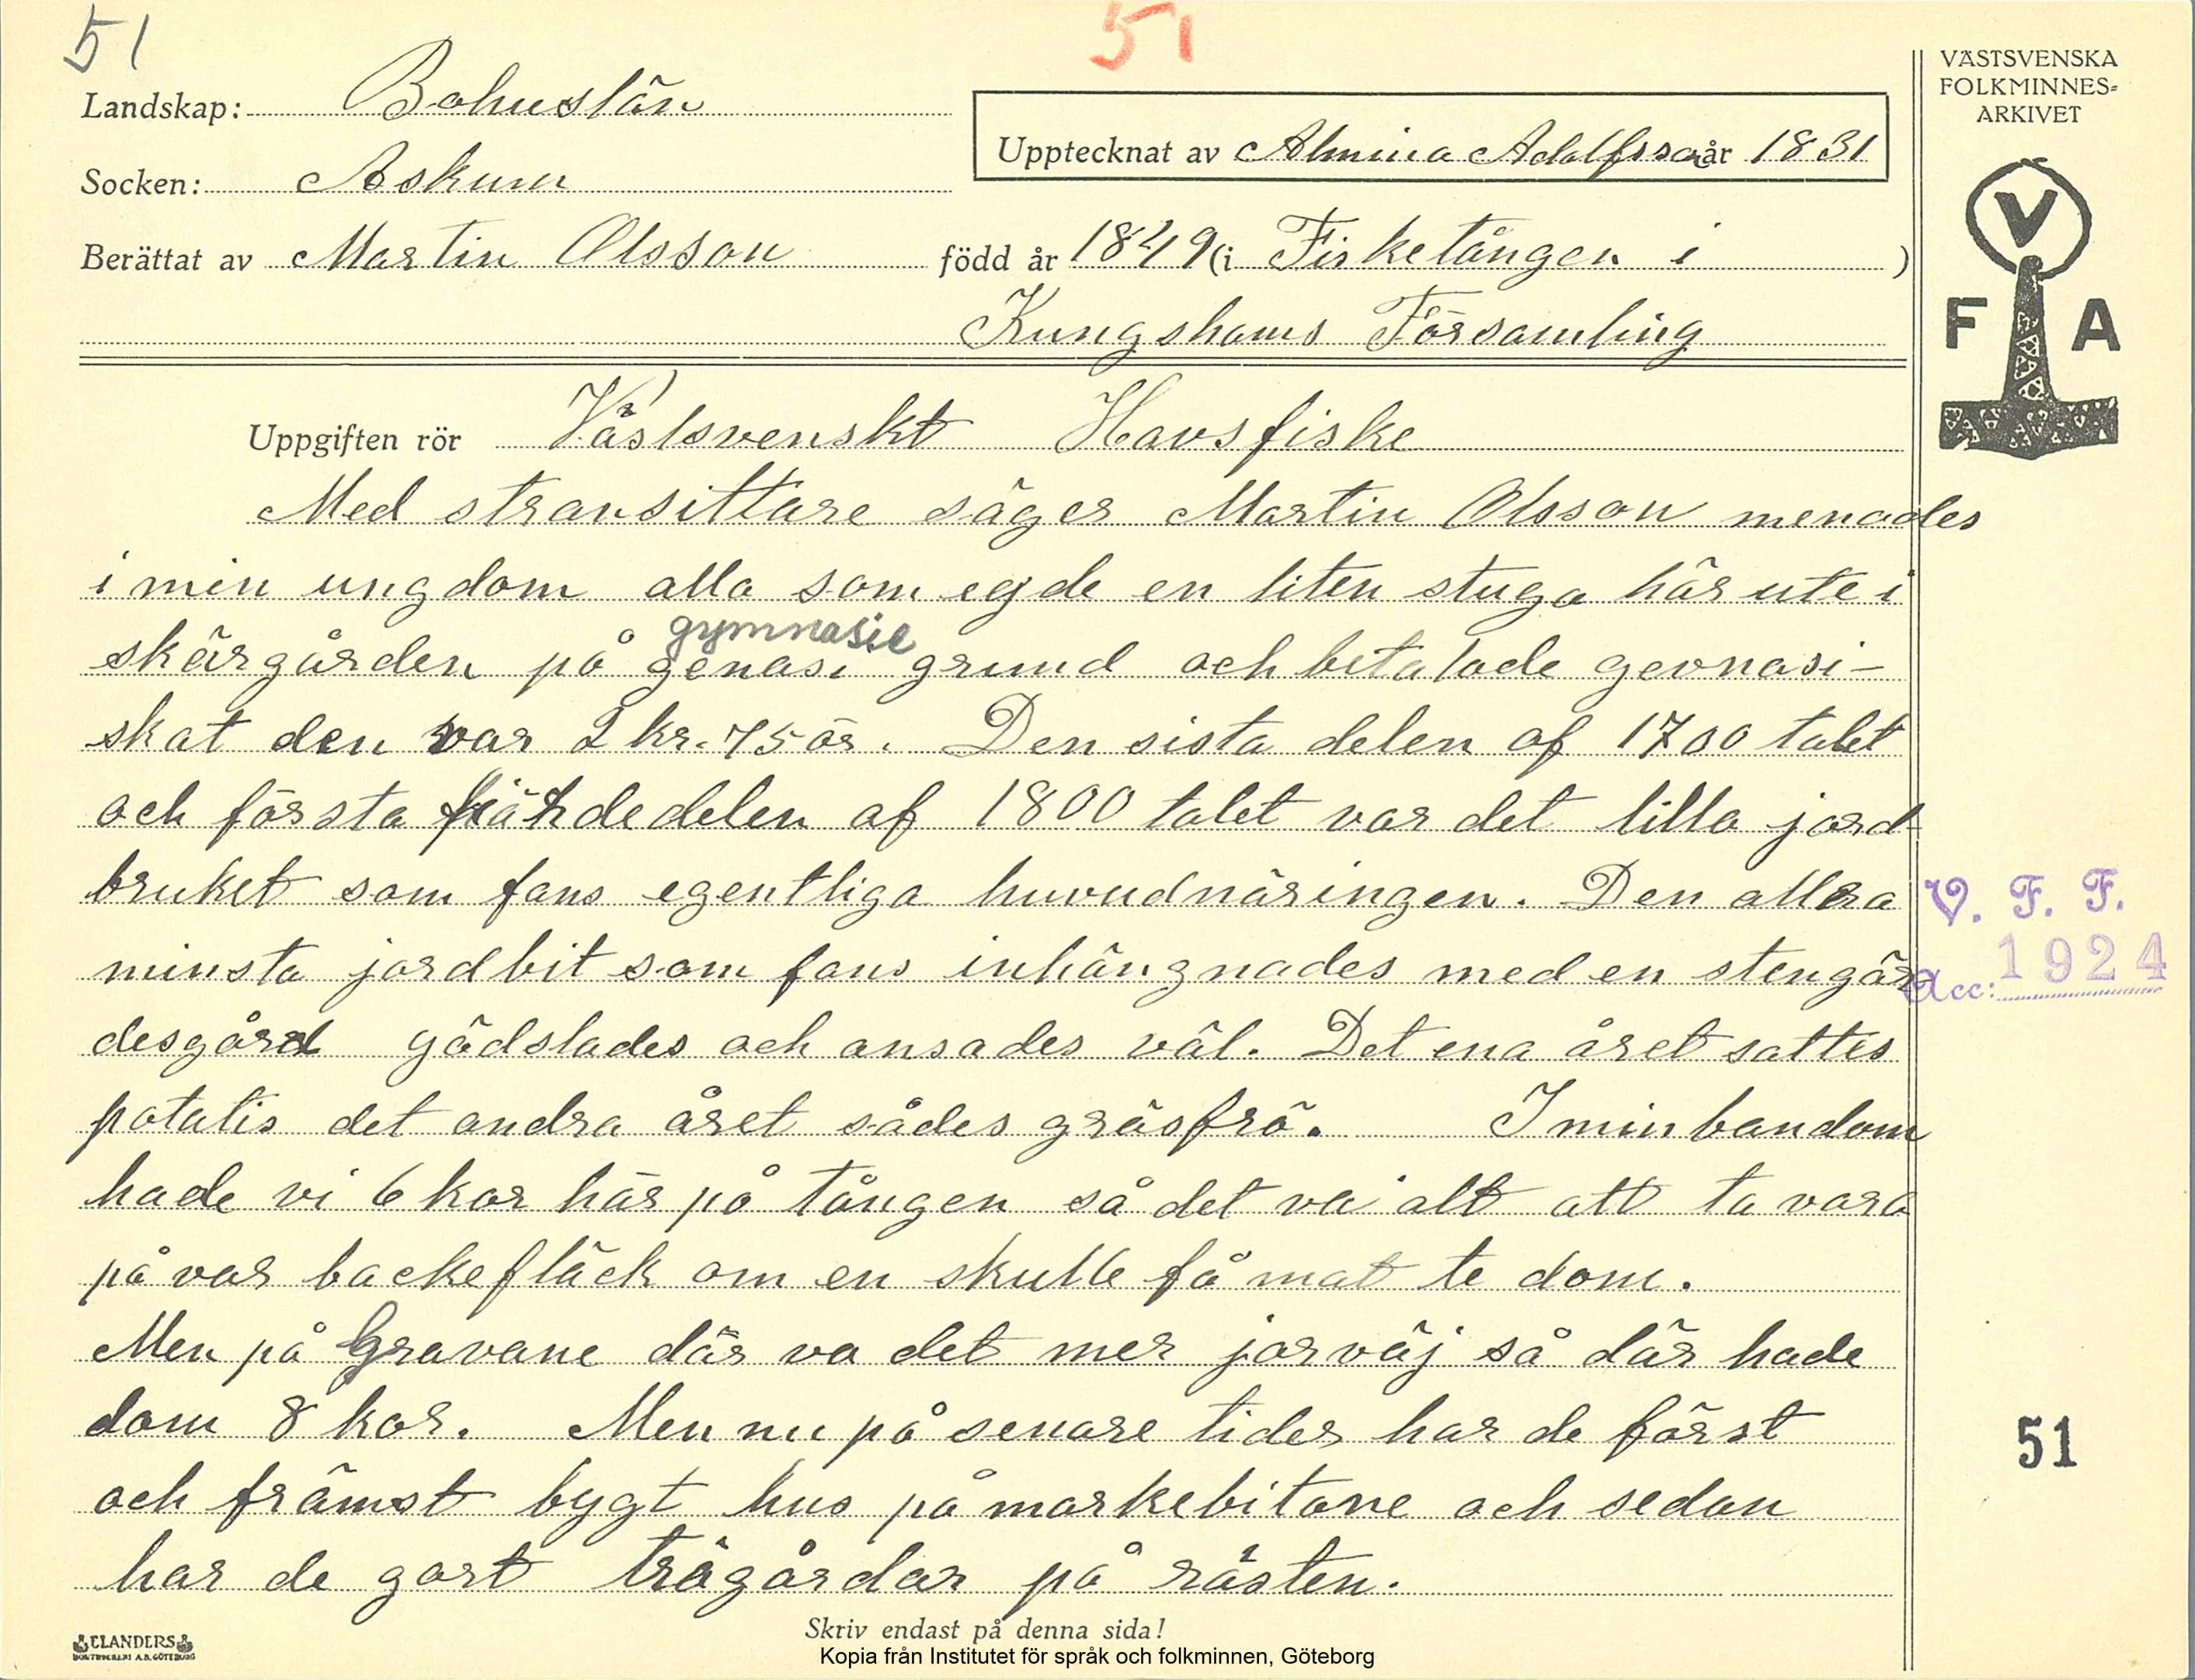 51
51
VÄSTSVENSKA
FOLKMINNES-
ARKIVET
Landskap: Bohuslän
Upptecknat av Almina Adolfsson år 1831
Socken: Askum
Berättat av Martin Olsson född år 1849 (i Fisketången i )
Kungshams Församling
V
F A
Uppgiften rör Västsvenskt Havsfiske
Med stransittare säger Martin Olsson menades
i min ungdom alla som egde en liten stuga här ute i
gymnasie
skärgården på genasi grund och betalade gevnasi-
skat den var 2 kr. 75 ör. Den sista delen af 1700 talet
och första fjärdedelen af 1800 talet var det lilla jord-
bruket som fans egentliga huvudnäringen. Den allra
minsta jordbit som fans inhängnades med en stengär
desgård gödslades och ansades väl. Det ena året sattes
potatis det andra året sådes gräsfrö. I min bandom
hade vi 6 kor här på tången så det va alt att ta vara
på var backefläck om en skulle få mat te dom.
Men på Gravane där va det mer jorväj så där hade
dom 8 kor. Men nu på senare tider har de först
och främst bygt hus på markebitane och sedan
har de gort trägårdar på rästen.
V. F. F.
Acc: 1924
51
ELANDERS
BOKTRYCKERI A.B. GÖTEBORG
Skriv endast på denna sida!
Kopia från Institutet för språk och folkminnen, Göteborg